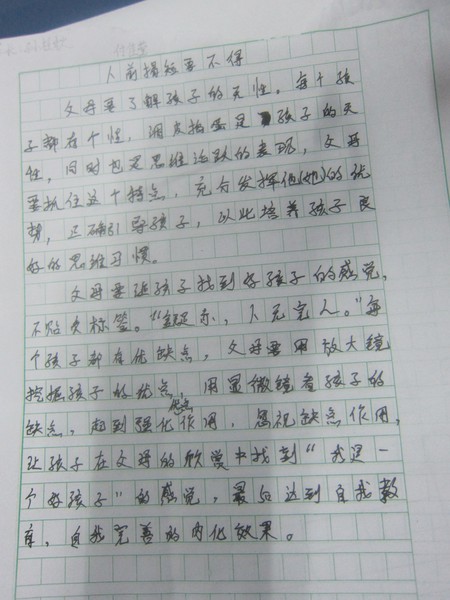 人前揭短要不得
父母要了解孩子的天性。每个孩
子都有个性，调皮捣蛋是孩子的天
性，同时也是思维活跃的表现，父母
要抓住这个特点，充分发挥他(她)的优
势，正确引导孩子，以此培养孩子良
好的思维习惯。
父母要让孩子找到好孩子的感觉，
不贴负标签。“金无足赤，人无完人。”每
个孩子都有优缺点，父母要用放大镜
挖掘孩子的优点，用显微镜看孩子的
缺点，起到强化优点作用，忽视缺点作用，
让孩子在父母的欣赏中找到“我是一
个好孩子”的感觉，最后达到自我教
育，自我完善的内化效果。